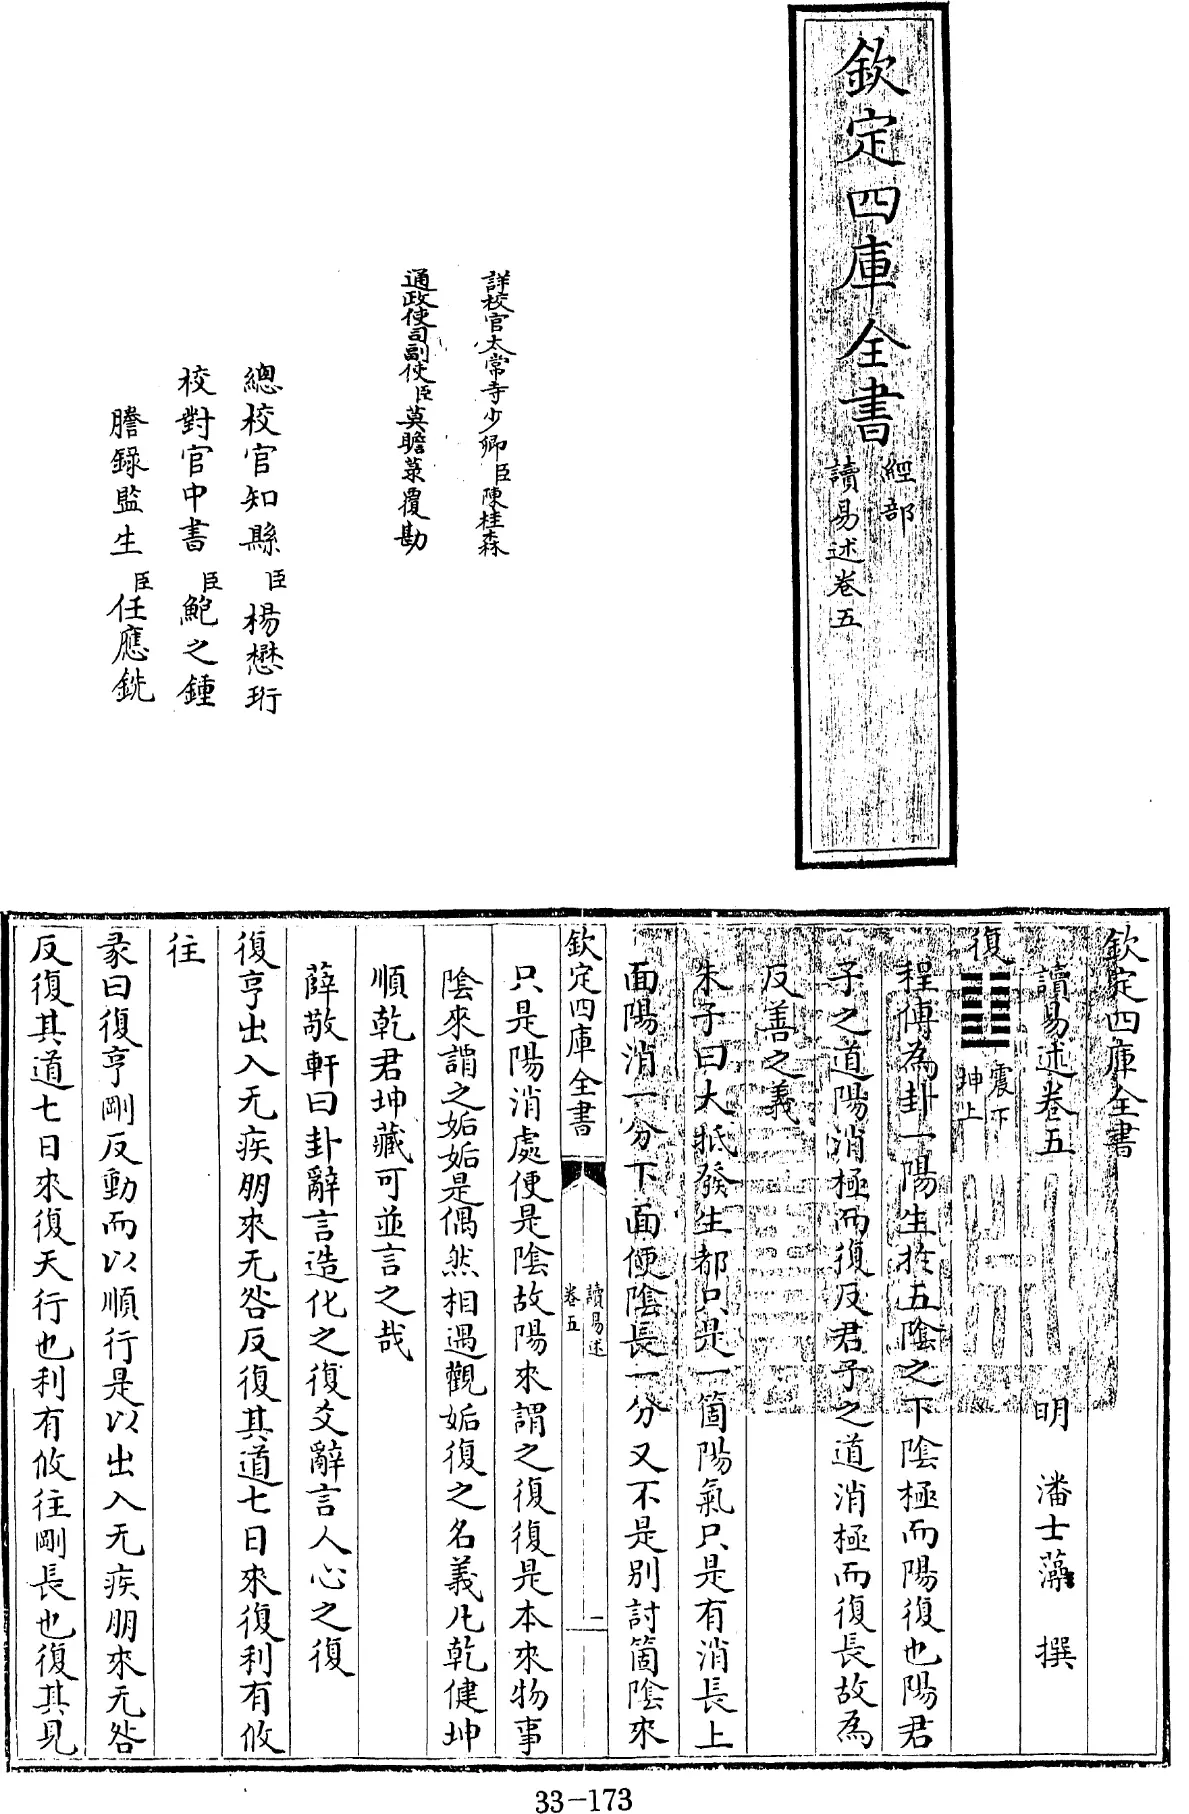 欽定四庫全書
經部
讀易述卷五
詳校官太常寺少卿臣陳桂森
通政使司副使臣莫瞻菉覆勘
總校官知縣臣楊懋珩
校對官中書臣鮑之鍾
謄錄監生臣任應銑
欽定四庫全書
讀易述卷五
明 潘士藻 撰
復
震下
坤上
程傳為卦一陽生於五陰之下陰極而陽復也陽君
子之道陽消極而復反君子之道消極而復長故為
反善之義
朱子曰大抵發生都只是一箇陽氣只是有消長上
面陽消一分下面便陰長一分又不是別討箇陰來
欽定四庫全書
讀易述
卷五
一
只是陽消處便是陰故陽來謂之復復是本來物事
陰來謂之姤姤是偶然相遇觀姤復之名義凡乾健坤
順乾君坤藏可並言之哉
薛敬軒曰卦辭言造化之復爻辭言人心之復
復亨出入无疾朋來无咎反復其道七日來復利有攸
往
彖曰復亨剛反動而以順行是以出入无疾朋來无咎
反復其道七日來復天行也利有攸往剛長也復其見
33-173